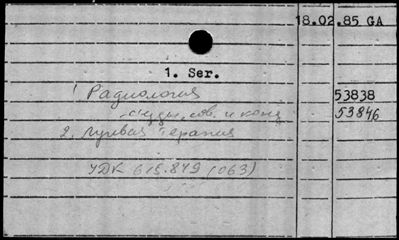 18.02.85 GA
1. Ser.
1 Радиология 53838
съезды, сов. и конф 53846
2. Лучевая терапия
УДК 615.849 (063)